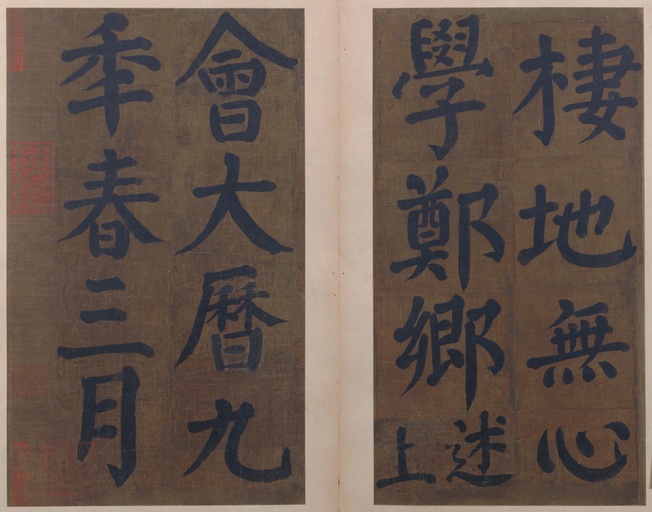 棲地無心
學鄭鄉述上
會大曆九
秊春三月